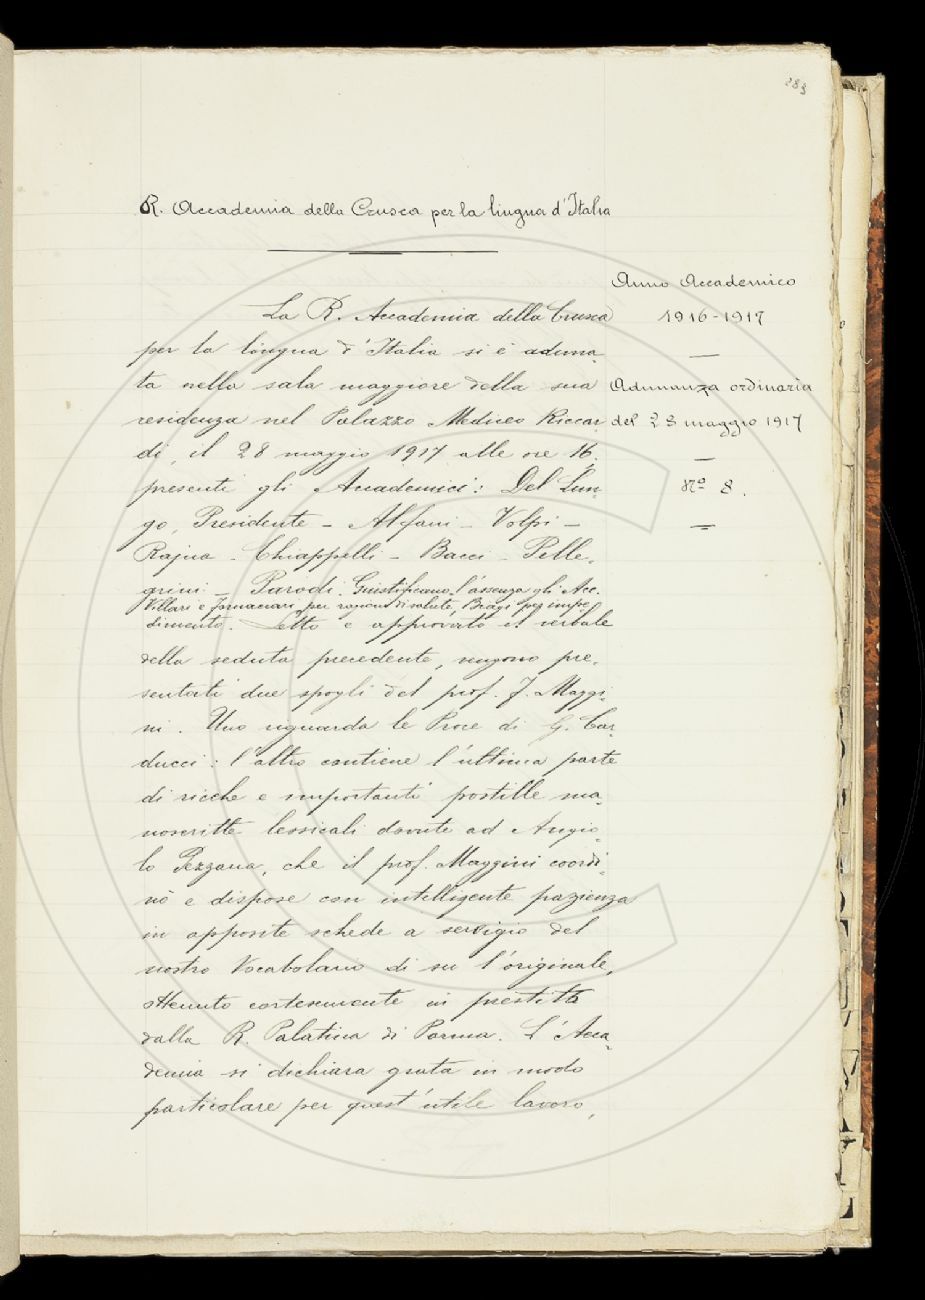 283
R. Accademia della Crusca per la lingua d'Italia
Anno Accademico
1916-1917
Adunanza ordinaria
del 28 maggio 1917
Nº 8.
La R. Accademia della Crusca
per la lingua d'Italia si è aduna-
ta nella sala maggiore della sua
residenza nel Palazzo Mediceo Riccar-
di, il 28 maggio 1917 alle ore 16.
presenti gli Accademici: Del Lun-
go, Presidente - Alfani - Volpi -
Rajna - Chiappelli - Bacci - Pelle-
grini - Parodi. Giustificano l'assenza gli Acc.
Villari e Fornaciari per ragioni di salute, Biagi per impe-
dimento. Letto e approvato il verbale
della seduta precedente, vengono pre-
sentati due spogli del prof. F. Maggi-
ni. Uno riguarda le Prose di G. Car-
ducci: l'altro contiene l'ultima parte
di ricche e importanti postille ma-
noscritte lessicali dovute ad Angio-
lo Pezzana, che il prof. Maggini coordi-
nò e dispose con intelligente pazienza
in apposite schede a servigio del
nostro Vocabolario di su l'originale,
ottenuto cortesemente in prestito
dalla R. Palatina di Parma. L'Acca-
demia si dichiara grata in modo
particolare per quest'utile lavoro,